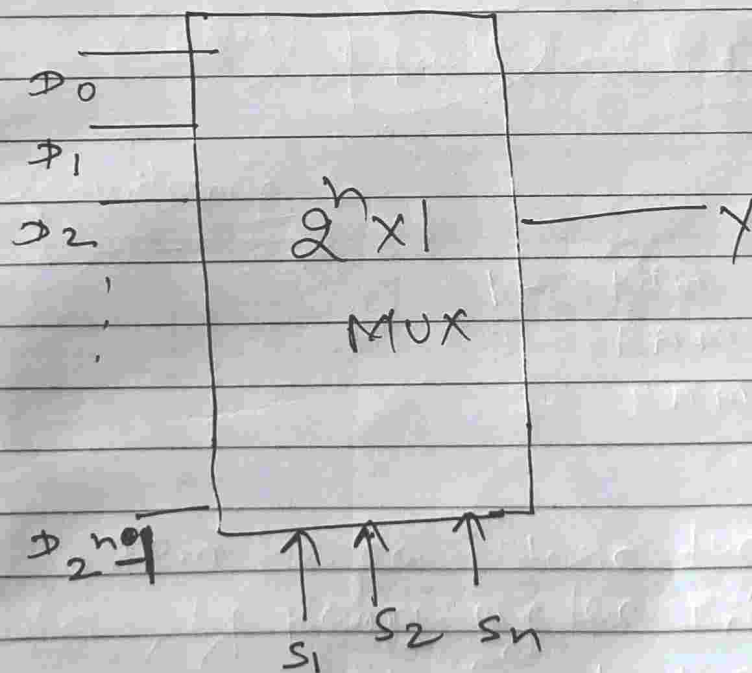 D0
D1
D2
2^n x 1
MUX
Y
D2^n-1
S1 S2 Sn